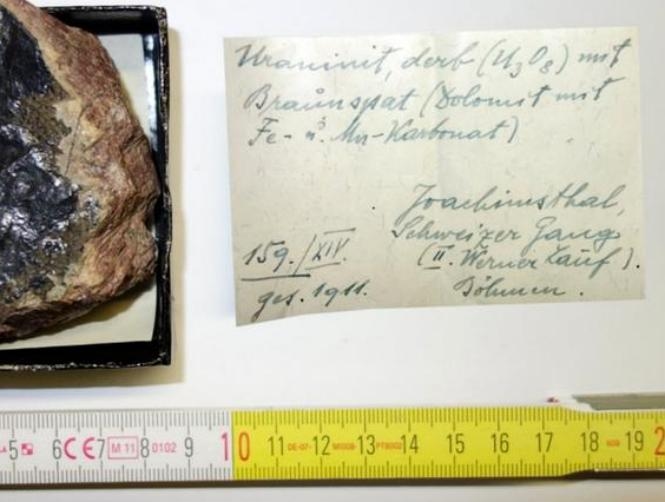 Uraninit, derb (U3O8) mit
Braunspat (Dolomit mit
Fe- u. Mn-Karbonat)
Joachimsthal,
Schweizer Gang
(II. Werner Lauf).
Böhmen.
159./XIV.
ges. 1911.
5 6 CE 7 M 11 8 0102 9 10 11 DE-07- 12 13 14 15 16 17 18 19 2